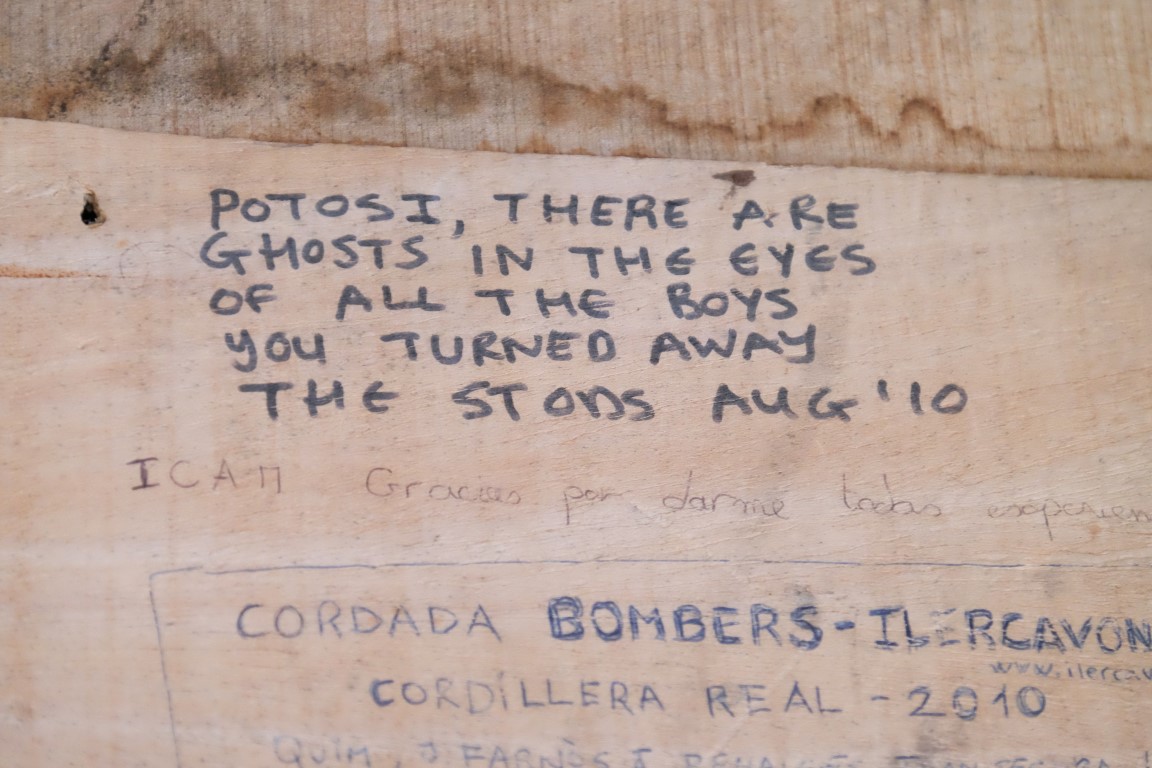 POTOSI, THERE ARE
GHOSTS IN THE EYES
OF ALL THE BOYS
YOU TURNED AWAY
THE STODS AUG '10
Gracias por darme todas
CORDADA BOMBERS-ILERCAVON
www.ilercav
CORDILLERA REAL - 2010
QUIM, J FARNÒS